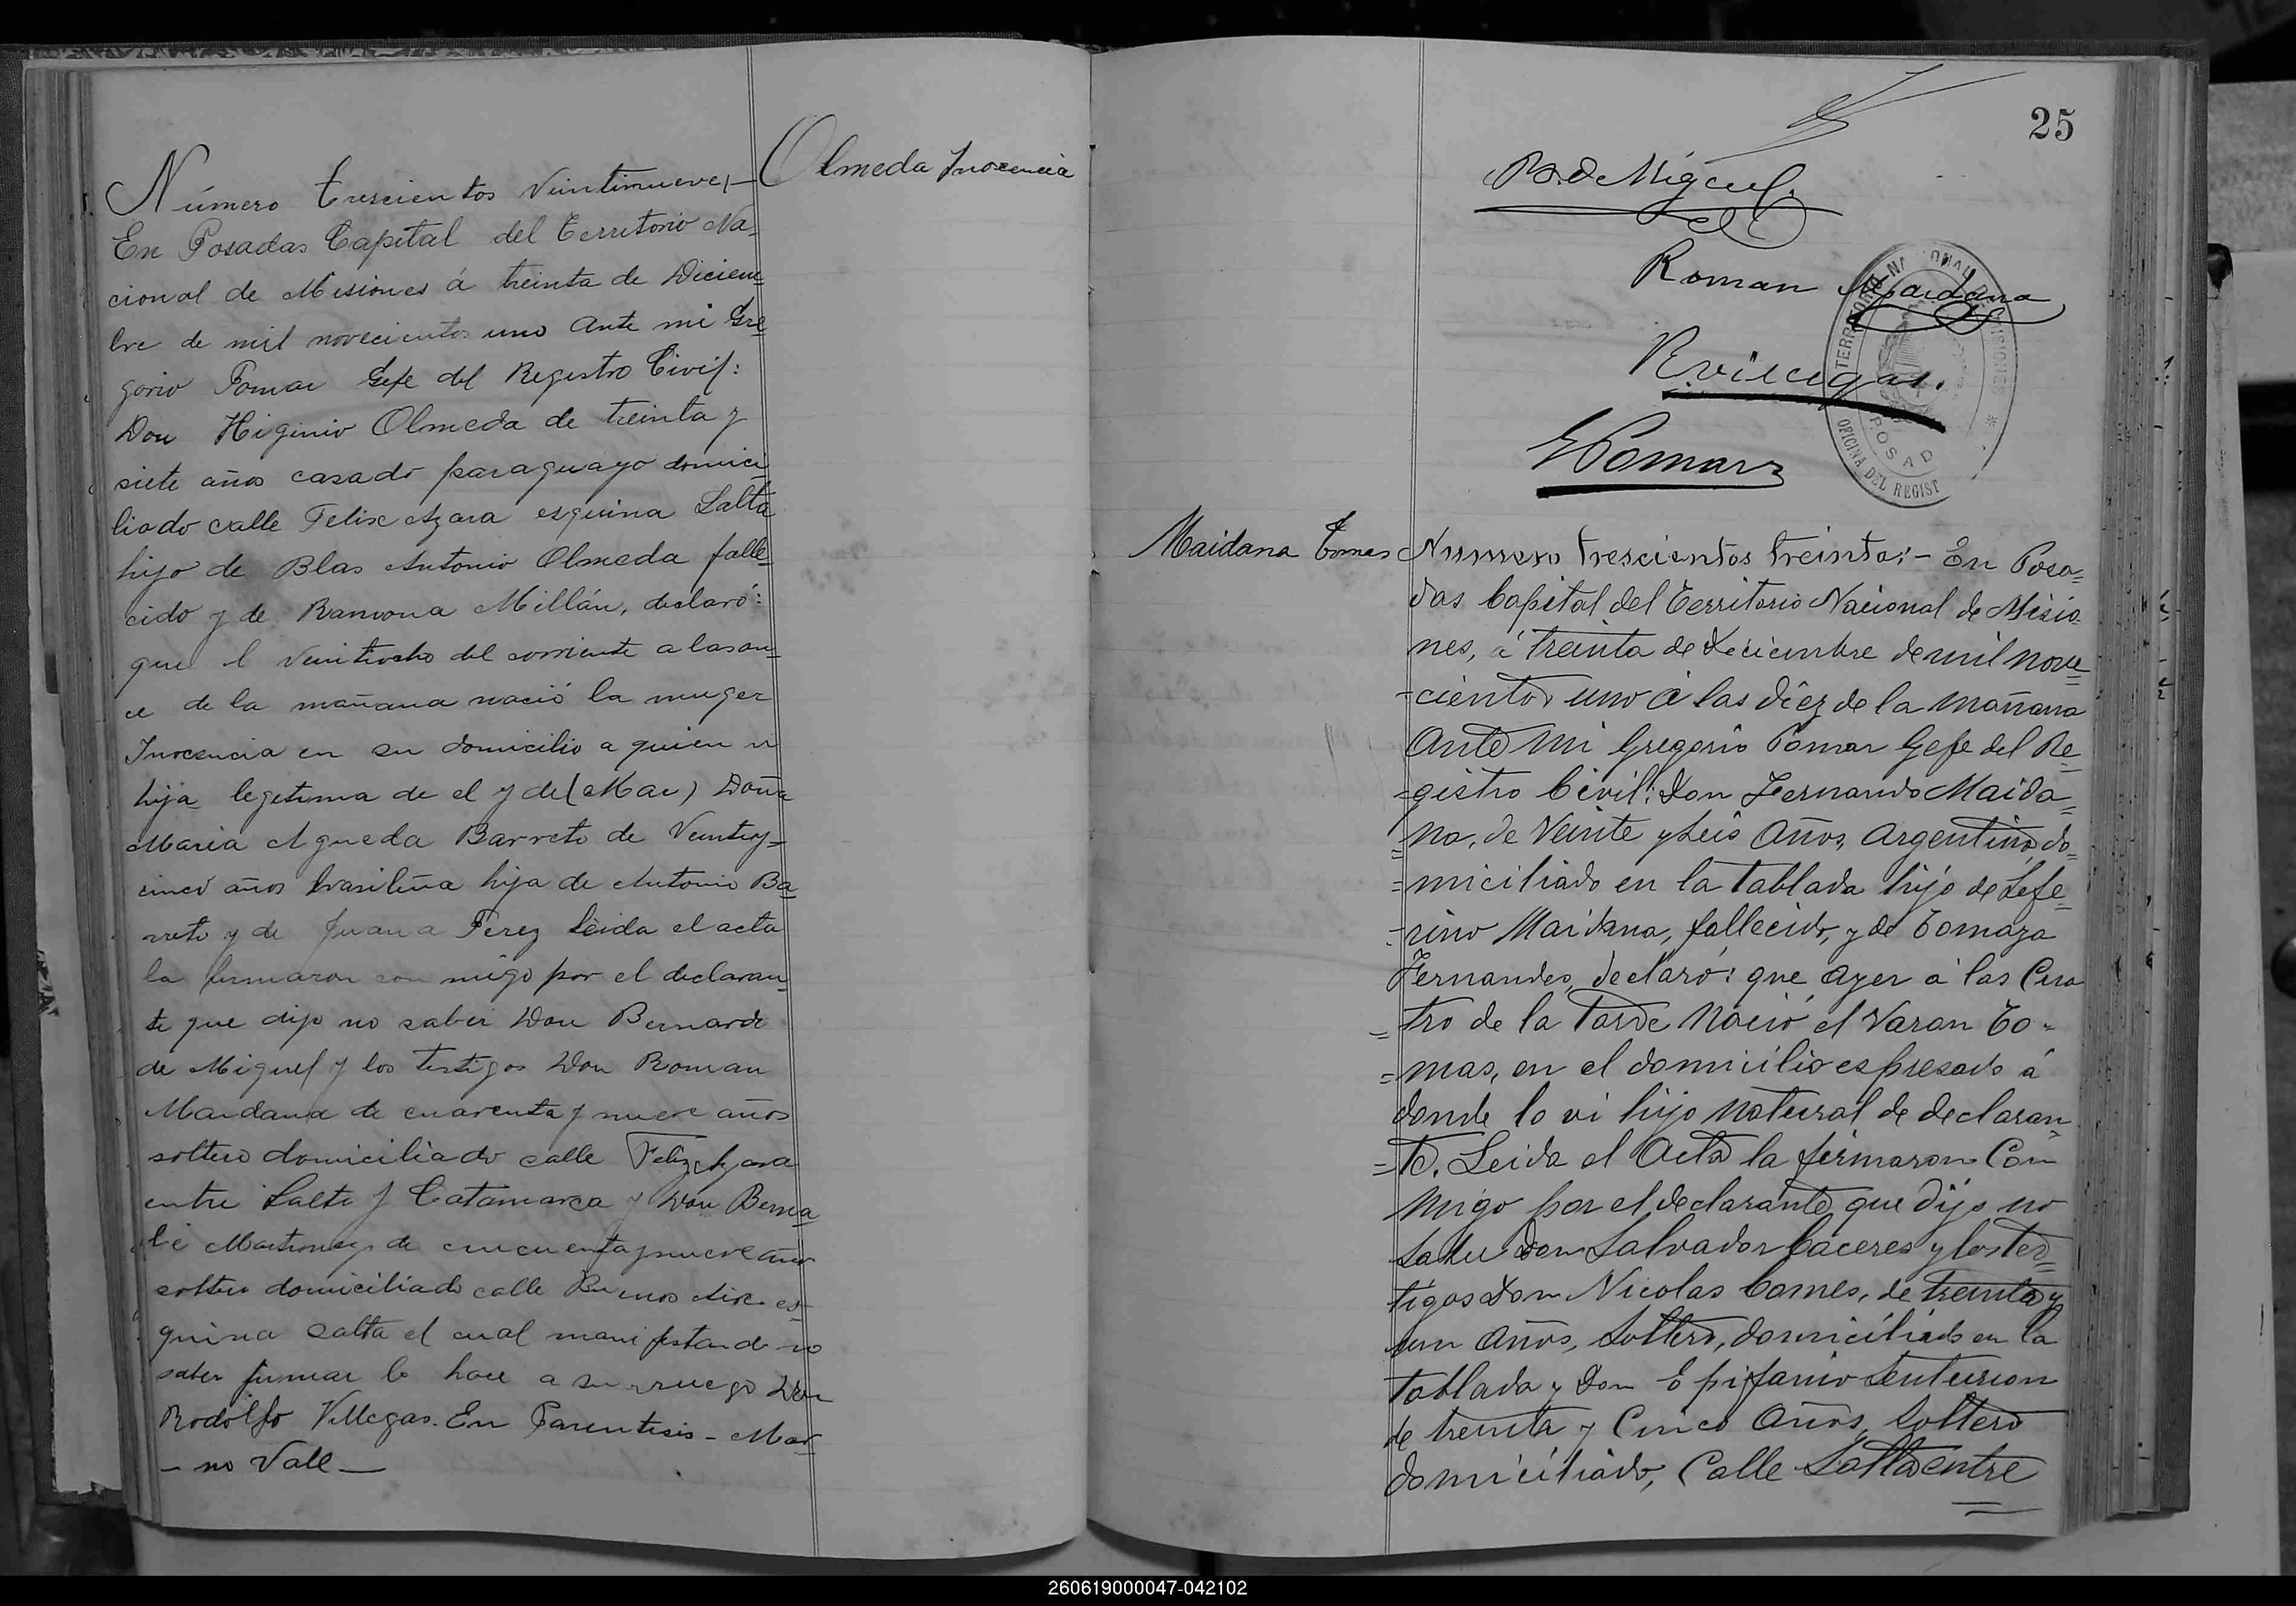 Olmeda Inocencia
Número trescientos veintinueve,—
En Posadas Capital del Territorio Na_
cional de Misiones á treinta de Diciem_
bre de mil novecientos uno ante mi Gre_
gorio Pomar Gefe del Registro Civil:
Don Higinio Olmeda de treinta y
siete años casado paraguayo domici
liado calle Felix Azara esquina Salta
hijo de Blas Antonio Olmeda falle_
cido y de Ramona Millán, declaró:
que el veintiocho del corriente a las on_
ce de la mañana nació la muger
Inocencia en su domicilio a quien vi
hija legitima de el y de (Mar) Doña
Maria Agueda Barreto de Veintiy_
cinco años brasileña hija de Antonio Ba_
rreto y de Juana Perez Leida el acta
la firmaron con migo por el declaran_
te que dijo no saber Don Bernardo
de Miguel y los testigos Don Roman
Maidana de cuarenta y nueve años
soltero domiciliado calle Felix Azara
entre Salta y Catamarca y Don Berna_
bé Martinez de cincuenta y nueve años
soltero domiciliado calle Buenos Aires es_
quina Salta el cual manifestando no
saber firmar lo hace a su ruego Don
Rodolfo Villegas. En Parentesis - Mar_
— no Vale —
25
B. de Miguel
Roman Maidana
R Villegas.
G Pomar
TERRITORIO NACIONAL DE MISIONES
OFICINA DEL REGIST
POSAD
Maidana Tomas
Numero trescientos treinta:- En Posa=
das Capital del Territorio Nacional de Misio
nes, á treinta de Deciembre de mil nove
=cientos uno á las diez de la mañana
Ante mi Gregorio Pomar Gefe del Re
=gistro Civil: Don Fernando Maida=
=na, de Veinte y seis años, Argentino, do=
=miciliado en la tablada hijo de Sefe=
=rino Maidana, fallecido, y de Tomaza
Fernandes, declaró: que ayer á las Cua
=tro de la tarde Nació el Varon To=
=mas, en el domicilio espresado á
donde lo vi hijo Natural de declaran
=te. Leida el Acta la firmaron Con
Migo por el declarante que dijo no
saber Don Salvador Caceres y los tes=
tigos Don Nicolas Comes, de treinta y
un años, Soltero, domiciliado en la
tablada y Don Epifanio Senturion
de treinta y Cinco Años, Soltero
domiciliado, Calle Salta entre
260619000047-042102